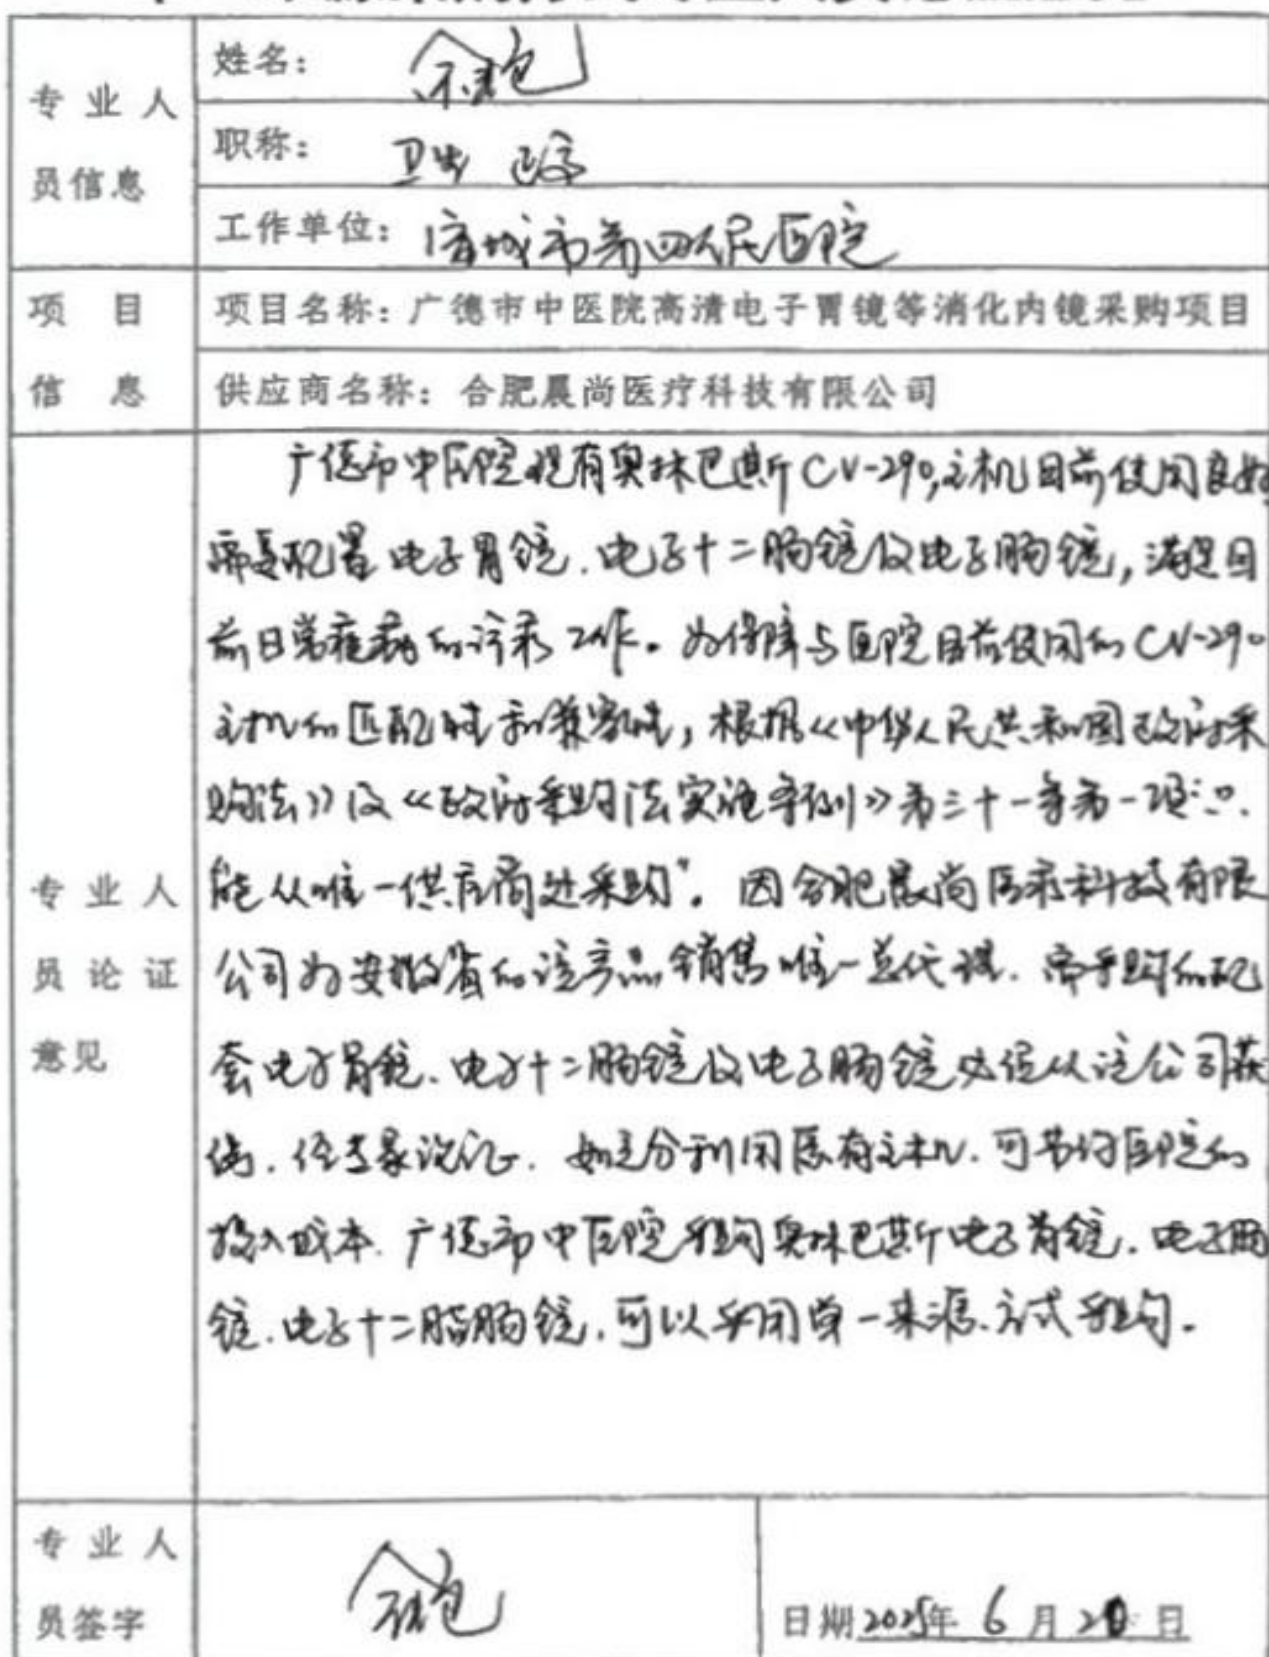 专业人员信息
姓名：
职称：
工作单位：宣城市第四人民医院
项目信息
项目名称：广德市中医院高清电子胃镜等消化内镜采购项目
供应商名称：合肥晨尚医疗科技有限公司
专业人员论证意见
广德市中医院现有奥林巴斯CV-290,主机目前使用良好
需要配置电子胃镜.电子十二肠镜及电子肠镜,满足目
前日常 的诊疗工作。为保障与医院目前使用的CV-290
主机的匹配性和兼容性,根据《中华人民共和国政府采
购法》及《政府采购法实施条例》第三十一条第一项:"只.
能从唯一供应商处采购"。因合肥晨尚医疗科技有限
公司为安徽省的该产品销售唯一总代理.需采购的配
套电子胃镜.电子十二肠镜及电子肠镜必须从该公司获
得.经专家论证.如充分利用原有主机.可节约医院的
投入成本.广德市中医院采购奥林巴斯电子胃镜.电子肠
镜.电子十二指肠镜.可以采用单一来源方式采购.
专业人员签字
日期2025年6月 日